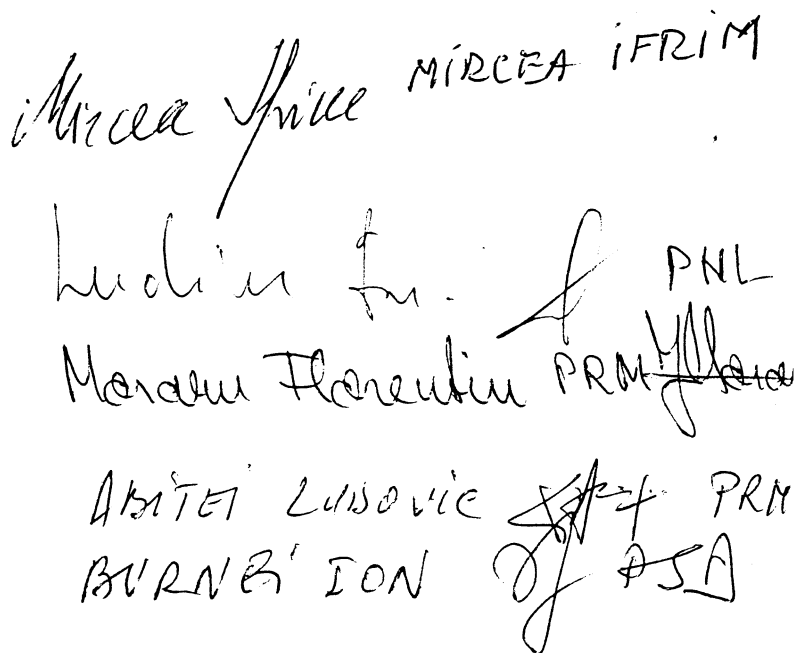 Mircea Ifrim MIRCEA IFRIM
PNL
Moraru Florentin PRM
ABITEI LUDOVIC PRM
BURNEI ION PSD